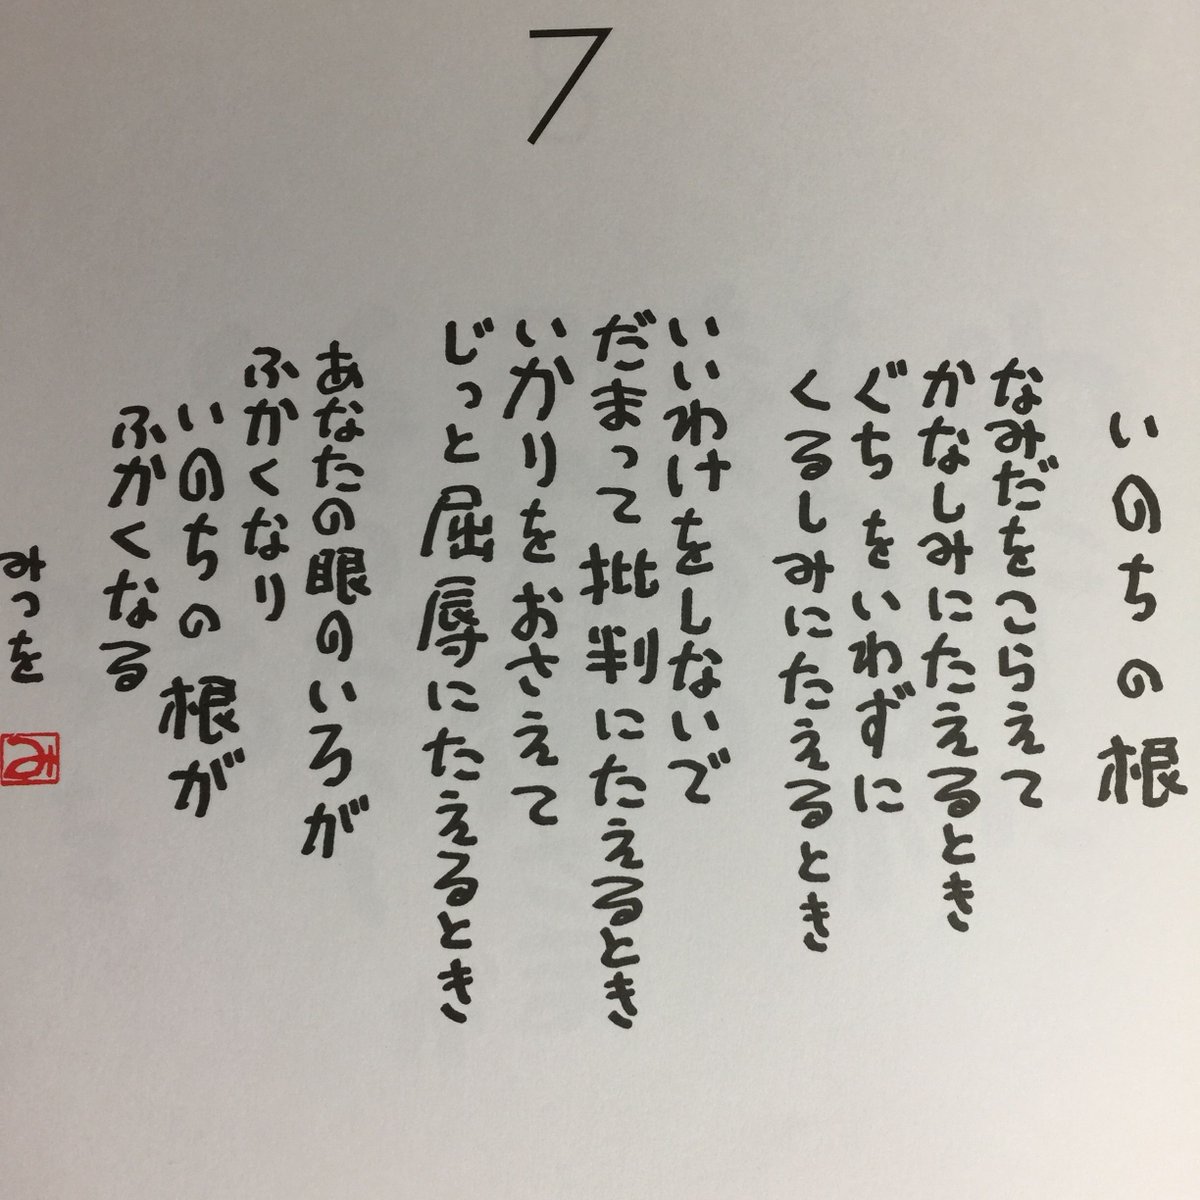 7
いのちの根
なみだをこらえて
かなしみにたえるとき
ぐちをいわずに
くるしみにたえるとき
いいわけをしないで
だまって批判にたえるとき
いかりをおさえて
じっと屈辱にたえるとき
あなたの眼のいろが
ふかくなり
いのちの根が
ふかくなる
みつを
み